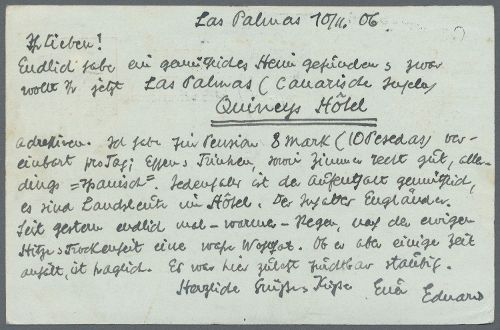 Las Palmas 10/11. 06.
Ihr Lieben!
Endlich habe ein gemütliches Heim gefunden u zwar
wollt Ihr jetzt Las Palmas (Canarische Inseln)
Quineys Hôtel
adressieren. Ich habe für Pension 8 Mark (10 Pesedas) ver-
einbart pro Tag; Essen u Trinken, sowie Zimmer recht gut, aller-
dings =spanisch=. Jedenfalls ist der Aufenthalt gemütlich,
es sind Landsleute im Hôtel. Der Inhaber Engländer.
Seit gestern endlich mal - warmer - Regen, nach der ewigen
Hitze u Trockenheit eine wahre Wohltat. Ob er aber einige Zeit
anhält, ist fraglich. Es war hier zuletzt furchtbar staubig.
Herzliche Grüße u Küsse Euer Eduard